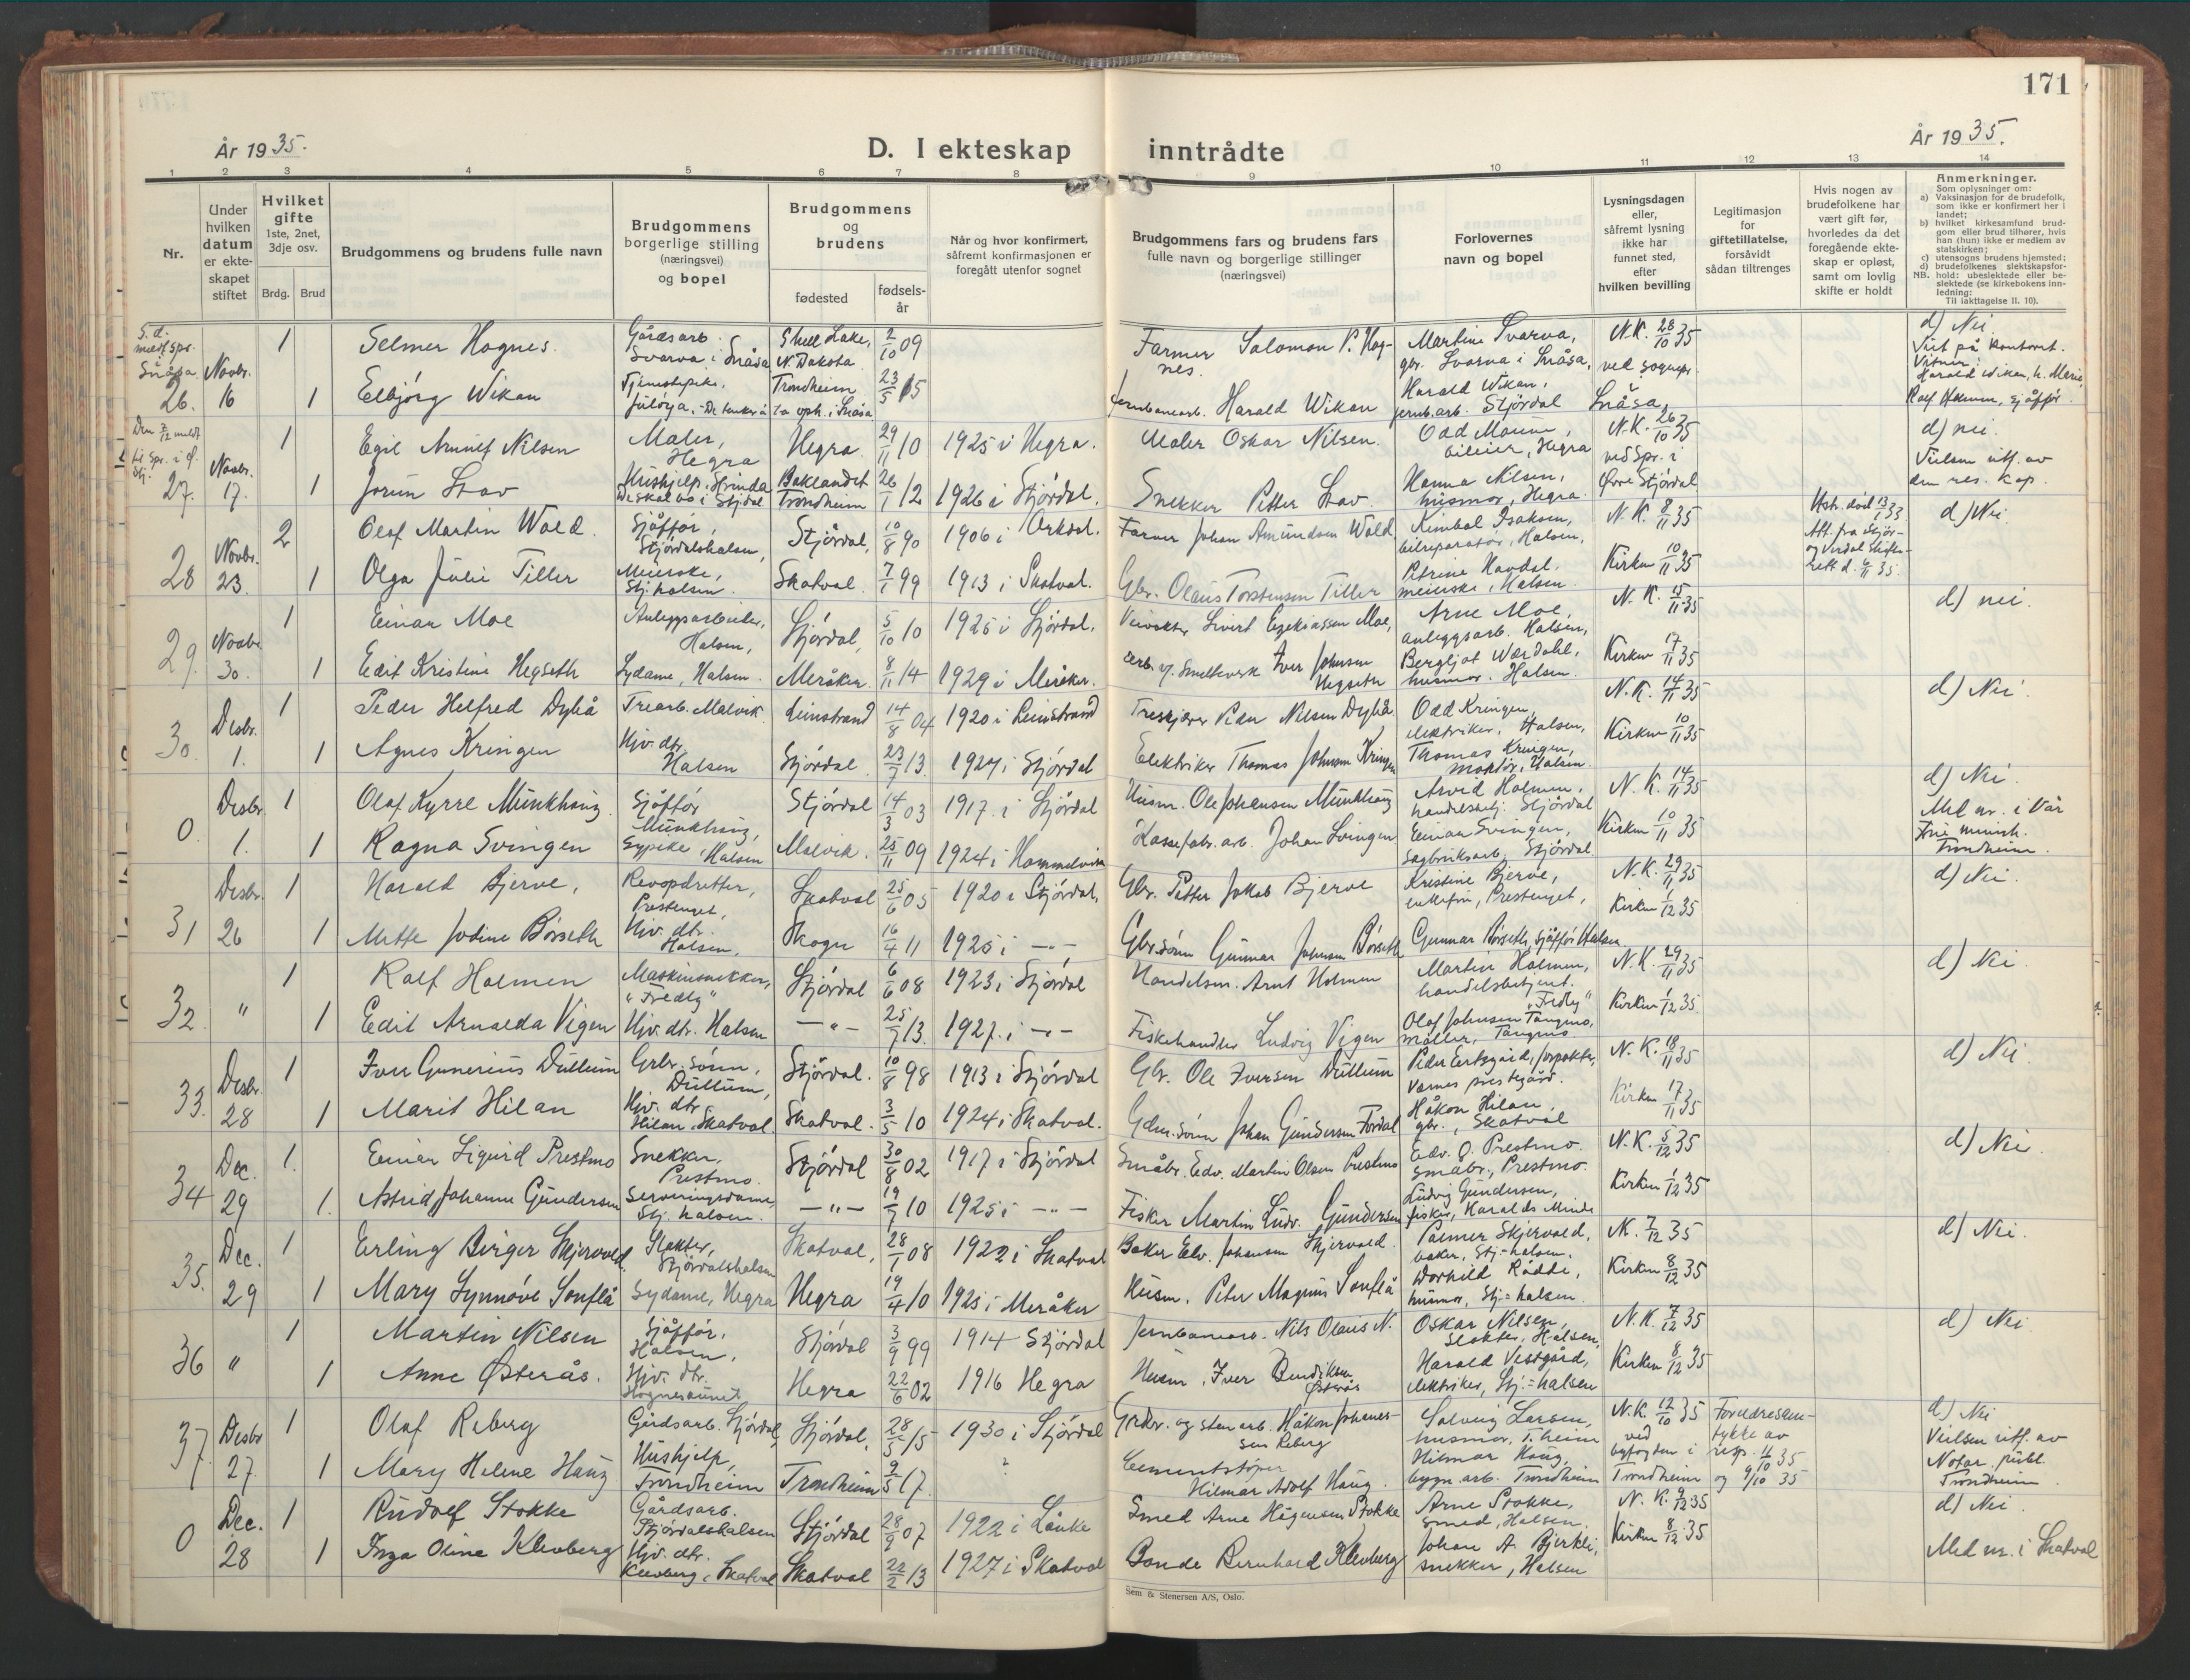 171
År 1935.
D. I ekteskap inntrådte
År 1935.
1 2 3 4 5 6 7 8 9 10 11 12 13 14
Nr.
Under hvilken datum er ekte-skapet stiftet
Hvilket gifte 1ste, 2net, 3dje osv.
Brdg. Brud
Brudgommens og brudens fulle navn
Brudgommens borgerlige stilling (næringsvei) og bopel
Brudgommens og brudens
fødested
fødsels-år
Når og hvor konfirmert, såfremt konfirmasjonen er foregått utenfor sognet
Brudgommens fars og brudens fars fulle navn og borgerlige stillinger (næringsvei)
Forlovernes navn og bopel
Lysningsdagen eller, såfremt lysning ikke har funnet sted, efter hvilken bevilling
Legitimasjon for giftetillatelse, forsåvidt sådan tiltrenges
Hvis nogen av brudefolkene har vært gift før, hvorledes da det foregående ekte-skap er opløst, samt om lovlig skifte er holdt
Anmerkninger.
Som oplysninger om:
a) Vaksinasjon for de brudefolk, som ikke er konfirmert her i landet;
b) hvilket kirkesamfund brud-gom eller brud tilhører, hvis han (hun) ikke er medlem av statskirken;
c) utensogns brudens hjemsted;
d) brudefolkenes slektskapsfor-hold: ubeslektede eller be-slektede (se kirkebokens inn-ledning:
NB. Til iakttagelse II. 10).
26. Novbr. 16
1 Selmer Hognes. Gårdsarb. Svarva i Snåsa Shell Lake, N. Dakota 2/10 09
Farmer Salomon P. Hog-nes. Martini Svarva, gbr. Svarva i Snåsa, N.K. 28/10 35 ved sognepr. d) Nei
1 Elbjørg Wikan Tjenestepike Trondheim 23/5 15
Jernbanearb. Harald Wikan Harald Wikan, jernb.arb. Stjørdal Snåsa
27. Novbr. 17.
1 Egil Arnulf Nilsen Maler, Hegra Hegra 29/11 10 1925 i Hegra.
Maler Oskar Nilsen. N.K. 26/10 35 ved Spr. i Øvre Stjørdal d) nei. Vielsen utf. av den res. kap.
1 Jorun Stav Hushjelp, Strinda Baklandet Trondheim 26/1 12 1926 i Stjørdal.
Snekker Petter Stav Hanna Nilsen, husmor, Hegra
28 Novbr. 23.
2 Olaf Martin Wold. Sjåffør, Stjørdalshalsen, Stjørdal, 10/8 90 1906 i Orkdal.
Farmer Johan Amundsen Wold Kimbal Isaksen, bilreparatør, Halsen, N.K. 8/11 35 d) Nei
1 Olga Julie Tiller Meierske, Stj. halsen. Skatval 7/1 99 1913 i Skatval.
Gbr. Olaus Torstensen Tiller Petrine Havdal, meierske, Halsen. Kirken 10/11 35
29. Novbr. 30.
1 Einar Moe Anleggsarbeider, Halsen, Stjørdal, 5/10 10 1925 i Stjørdal.
Veivokter Sivert Ezekiassen Moe, Arne Moe, anleggsarb. Halsen, N.K. 15/11 35 d) nei.
1 Edit Kristine Hegseth Sydame, Halsen. Meråker. 8/11 14 1929 i Meråker.
Arb. v. Smelteverk Iver Johnsen Hegseth Bergljot Wærdahl, husmor. Halsen. Kirken 17/11 35
30. Desbr. 1.
1 Peder Helfred Dybå Trearb. Malvik. Leinstrand 14/8 04 1920 i Leinstrand
Treskjærer Peder Nilsen Dybå Odd Kringen, elektriker, Halsen, N.K. 14/11 35 d) Nei.
1 Agnes Kringen Hjv. dtr. Halsen Stjørdal 23/7 13. 1927 i Stjørdal
Elektriker Thomas Johnsen Kringen Thomas Kringen, montør, Halsen. Kirken 10/11 35
0. Desbr. 1.
1 Olaf Kyrre Munkhaug Sjåffør Munkhaug, Stjørdal 14/3 03 1917. i Stjørdal
Husm. Ole Johansen Munkhaug Arvid Holmen, handelsbetj. Stjørdal N.K. 14/11 35 d) Nei. Med nr. i Vår Frue menigh. Trondheim.
1 Ragna Svingen Sypike, Halsen Malvik. 25/11 09 1924 i Hommelvik
Kassefabr. arb. Johan Svingen Einar Svingen, Sagbruksarb. Stjørdal Kirken 10/11 35
31 Desbr. 26
1 Harald Bjerve, Revopdretter, Prestenget, Skatval 25/6 05 1920 i Stjørdal.
Gbr. Petter Jakob Bjerve Kristine Bjerve, enkefru, Prestenget, N.K. 29/11 35 d) Nei.
1 Mette Jodine Børseth Hjv. dtr. Halsen. Skogn 16/4 11 1925 i –"–
Gbr.sønn Gunnar Johnsen Børseth Gunnar Børseth, sjåffør Halsen Kirken 1/12 35
32. "
1 Ralf Holmen Maskinsnekker, "Fredly" Stjørdal 6/6 08 1923 i Stjørdal
Handelsm. Arnt Holmen Martin Holmen, handelsbetjent. "Fredly" N.K. 29/11 35 d) Nei
1 Edit Arnalda Vigen Hjv. dtr. Halsen –"– 25/7 13. 1927. i –"–
Fiskehandler Ludvig Vigen Olaf Johnsen Tangmo, møller, Tangmo Kirken 1/12 35.
33. Desbr. 28
1 Iver Gunerius Dullum Grbr. sønn, Dullum, Stjørdal. 10/8 98 1913 i Stjørdal
Gbr. Ole Iversen Dullum Værnes prestegård. N.K. 18/11 35 d) Nei
1 Marit Hilan Hjv. dtr. Hilan, Skatval. Skatval. 3/5 10 1924 i Skatval.
Gdm.sønn Johan Gundersen Fordal Håkon Hilan, gbr., Skatval Kirken 17/11 35
34 Dec. 29
1. Einar Sigurd Prestmo Snekker, Prestmo. Stjørdal 30/8 02 1917 i Stjørdal
Småbr. Edv. Martin Olsen Prestmo Edv. O. Prestmo. småbr., Prestmo. N.K. 5/12 35 d) Nei.
1. Astrid Johanne Gundersen Serveringsdame, Stj. halsen. –"– 19/7 10 1925 i –"–
Fisker Martin Ludv. Gundersen Ludvig Gundersen, fisker, Haralds Minde Kirken 1/12 35
35. Dec. 29
1 Erling Birger Skjervold. Slakter, Stjørdalshalsen Skatval, 28/1 08 1922 i Skatval
Baker Elv. Johansen Skjervold. Palmer Skjervold, baker, Stj-halsen. N. 7/12 35 d) Nei.
1 Mary Synnøve Sonflå Sydame, Hegra Hegra 19/4 10 1925 i Meråker
Husm. Peter Magnus Sonflå Dorhild Rådde, husmor, Stj-halsen. Kirken 8/12 35
36 "
1 Martin Nilsen Sjåffør, Halsen, Stjørdal 3/9 99 1914 Stjørdal
Jernbanearb. Nils Olaus N. Oskar Nilsen, Slakter, Halsen, N.K. 7/12 35 d) Nei
1 Anne Østerås. Hjv. dtr. Hognesaunet Hegra 22/6 02 1916 Hegra
Husm. Iver Bendiksen Østerås Harald Vestgård, elektriker, Stj-halsen Kirken 8/12 35
37. Desbr 27.
1 Olaf Reberg Gårdsarb. Stjørdal, Stjørdal, 28/5 15 1930 i Stjørdal
Grdbr. og stenarb. Håkon Johannes-sen Reberg Solveig Larsen, husmor, T.heim N.K. 12/10 35 ved byfogden i Trondheim Foreldresam-tykke av resp. 11/10 35 og 9/10 35 d) Nei Vielsen utf. av Notar. publ. Trondheim
1 Mary Helene Haug Hushjelp, Trondheim Trondheim 9/5 17. ?
Cementstøper Hilmar Adolf Haug. Hilmar Haug, bygn.arb. Trondheim
0 Dec. 28
1 Rudolf Stokke Gårdsarb. Stjørdalshalsen Stjørdal 28/9 07 1922 i Lånke
Smed Arne Hågensen Stokke Arne Stokke, smed, Halsen. N.K. 9/12 35 d) Nei.
1 Inga Oline Klevberg Hjv. dtr. Klevberg, Skatval Skatval 22/2 13 1927 i Skatval
Bonde Bernhard Klevberg Johan A. Bjerkli, snekker, Halsen Kirken 8/12 35 Med nr. i Skatval
Sem & Stenersen A/S, Oslo.